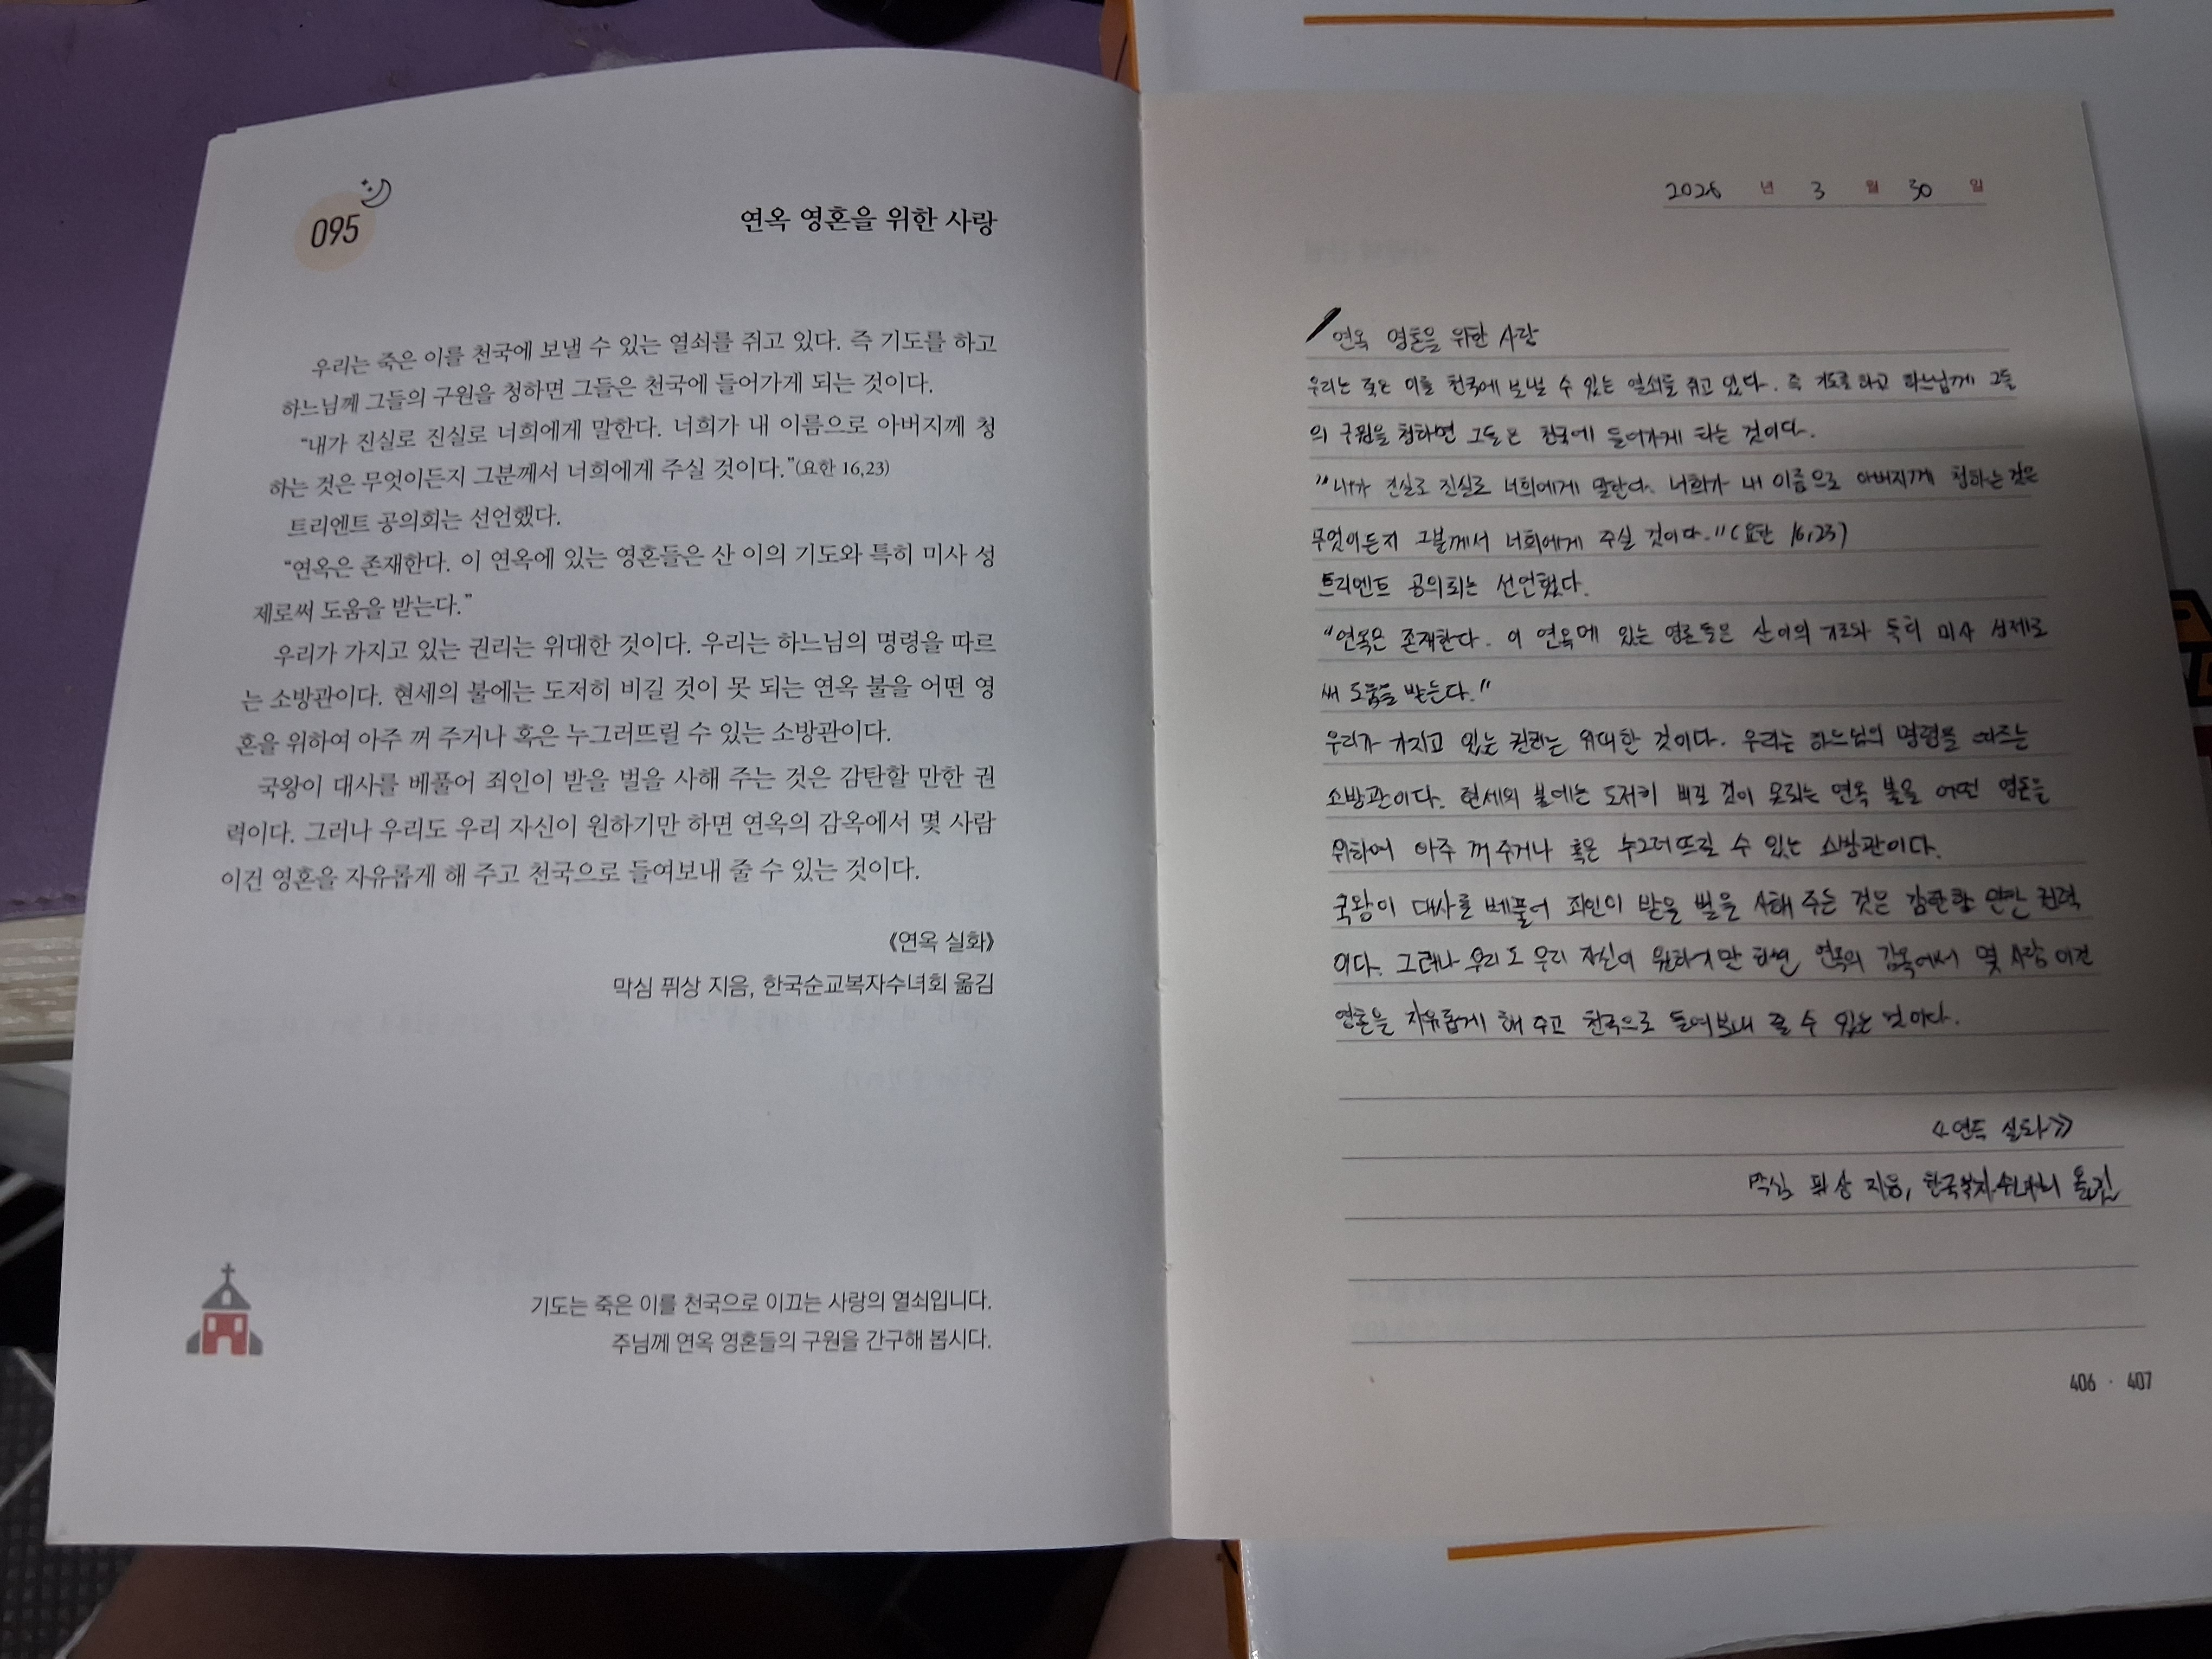 095
연옥 영혼을 위한 사랑
우리는 죽은 이를 천국에 보낼 수 있는 열쇠를 쥐고 있다. 즉 기도를 하고
하느님께 그들의 구원을 청하면 그들은 천국에 들어가게 되는 것이다.
“내가 진실로 진실로 너희에게 말한다. 너희가 내 이름으로 아버지께 청
하는 것은 무엇이든지 그분께서 너희에게 주실 것이다.”(요한 16,23)
트리엔트 공의회는 선언했다.
“연옥은 존재한다. 이 연옥에 있는 영혼들은 산 이의 기도와 특히 미사 성
제로써 도움을 받는다.”
우리가 가지고 있는 권리는 위대한 것이다. 우리는 하느님의 명령을 따르
는 소방관이다. 현세의 불에는 도저히 비길 것이 못 되는 연옥 불을 어떤 영
혼을 위하여 아주 꺼 주거나 혹은 누그러뜨릴 수 있는 소방관이다.
국왕이 대사를 베풀어 죄인이 받을 벌을 사해 주는 것은 감탄할 만한 권
력이다. 그러나 우리도 우리 자신이 원하기만 하면 연옥의 감옥에서 몇 사람
이건 영혼을 자유롭게 해 주고 천국으로 들여보내 줄 수 있는 것이다.
《연옥 실화》
막심 퓌상 지음, 한국순교복자수녀회 옮김
기도는 죽은 이를 천국으로 이끄는 사랑의 열쇠입니다.
주님께 연옥 영혼들의 구원을 간구해 봅시다.
2026 년 3 월 30 일
연옥 영혼을 위한 사랑
우리는 죽은 이를 천국에 보낼 수 있는 열쇠를 쥐고 있다. 즉 기도를 하고 하느님께 그들
의 구원을 청하면 그들은 천국에 들어가게 되는 것이다.
"내가 진실로 진실로 너희에게 말한다. 너희가 내 이름으로 아버지께 청하는 것은
무엇이든지 그분께서 너희에게 주실 것이다."(요한 16,23)
트리엔트 공의회는 선언했다.
"연옥은 존재한다. 이 연옥에 있는 영혼들은 산 이의 기도와 특히 미사 성제로
써 도움을 받는다."
우리가 가지고 있는 권리는 위대한 것이다. 우리는 하느님의 명령을 따르는
소방관이다. 현세의 불에는 도저히 비길 것이 못되는 연옥 불을 어떤 영혼을
위하여 아주 꺼 주거나 혹은 누그러뜨릴 수 있는 소방관이다.
국왕이 대사를 베풀어 죄인이 받을 벌을 사해 주는 것은 감탄할 만한 권력
이다. 그러나 우리도 우리 자신이 원하기만 하면 연옥의 감옥에서 몇 사람 이건
영혼을 자유롭게 해 주고 천국으로 들여보내 줄 수 있는 것이다.
실화》
막심 퓌상 지음, 옮김
406 · 407